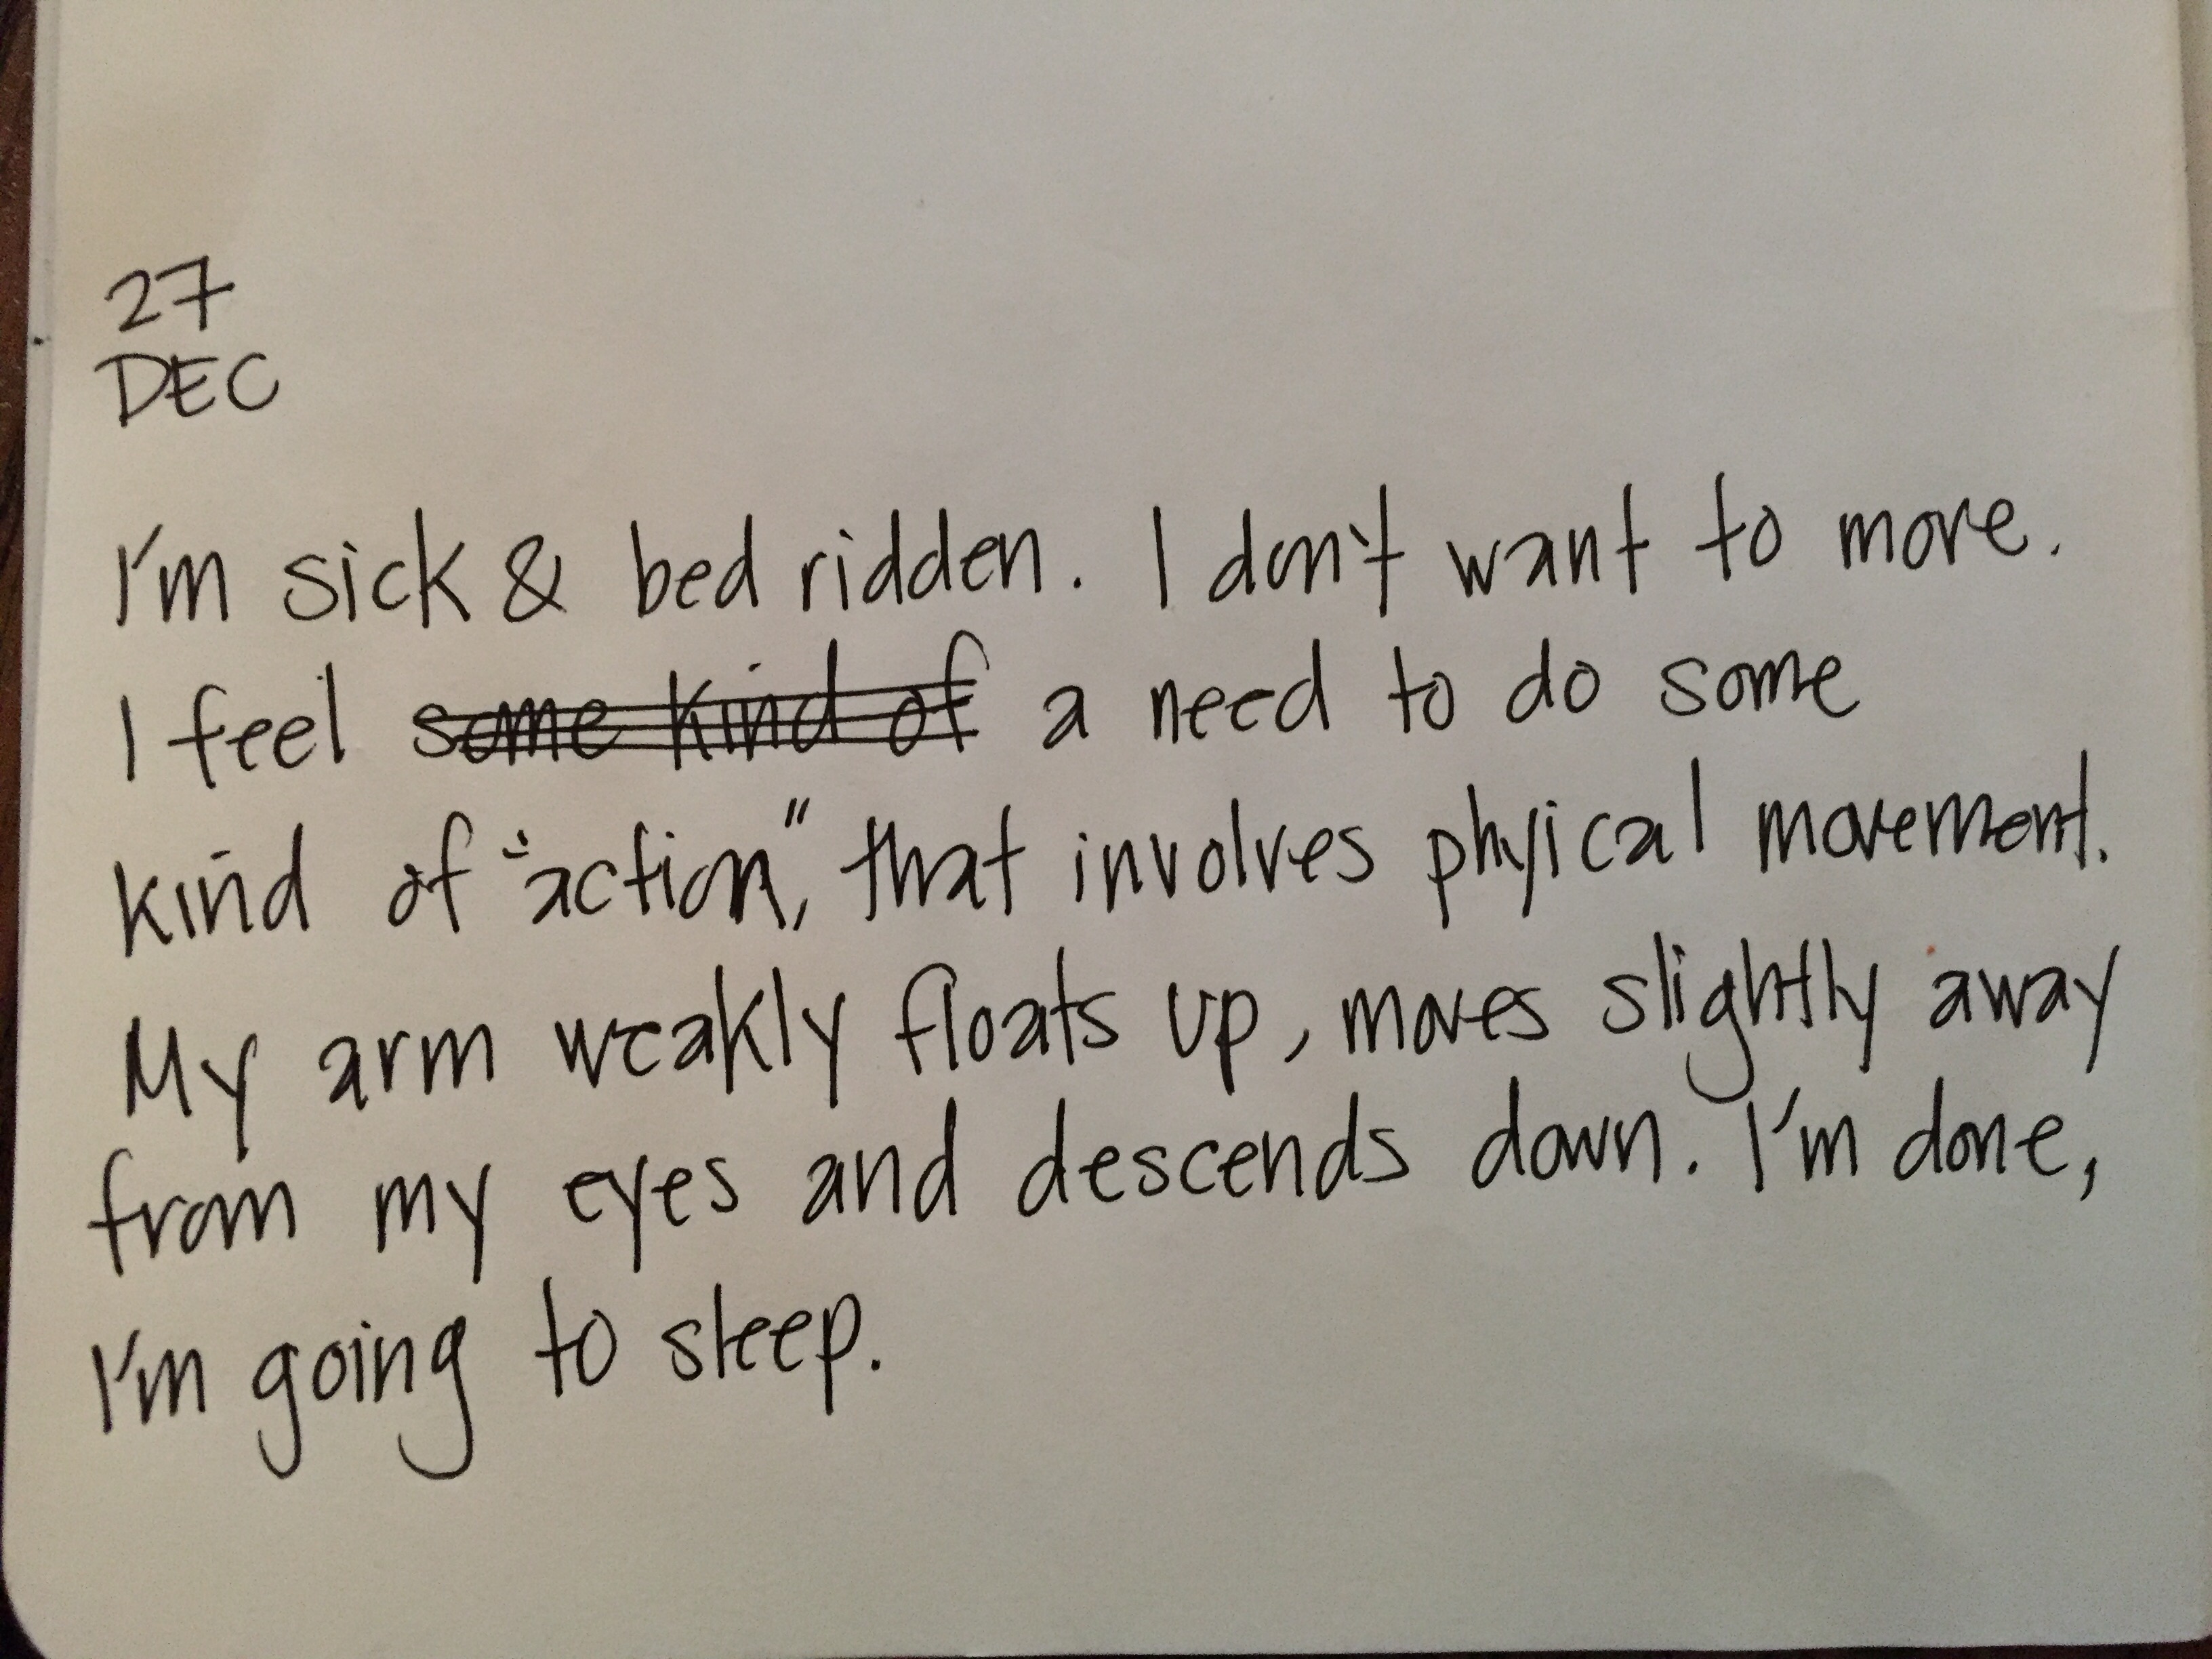 27
DEC
I'm sick & bed ridden. I don't want to move.
I feel some kind of a need to do some
kind of "action", that involves phyical movement.
My arm weakly floats up, moves slightly away
from my eyes and descends down. I'm done,
I'm going to sleep.